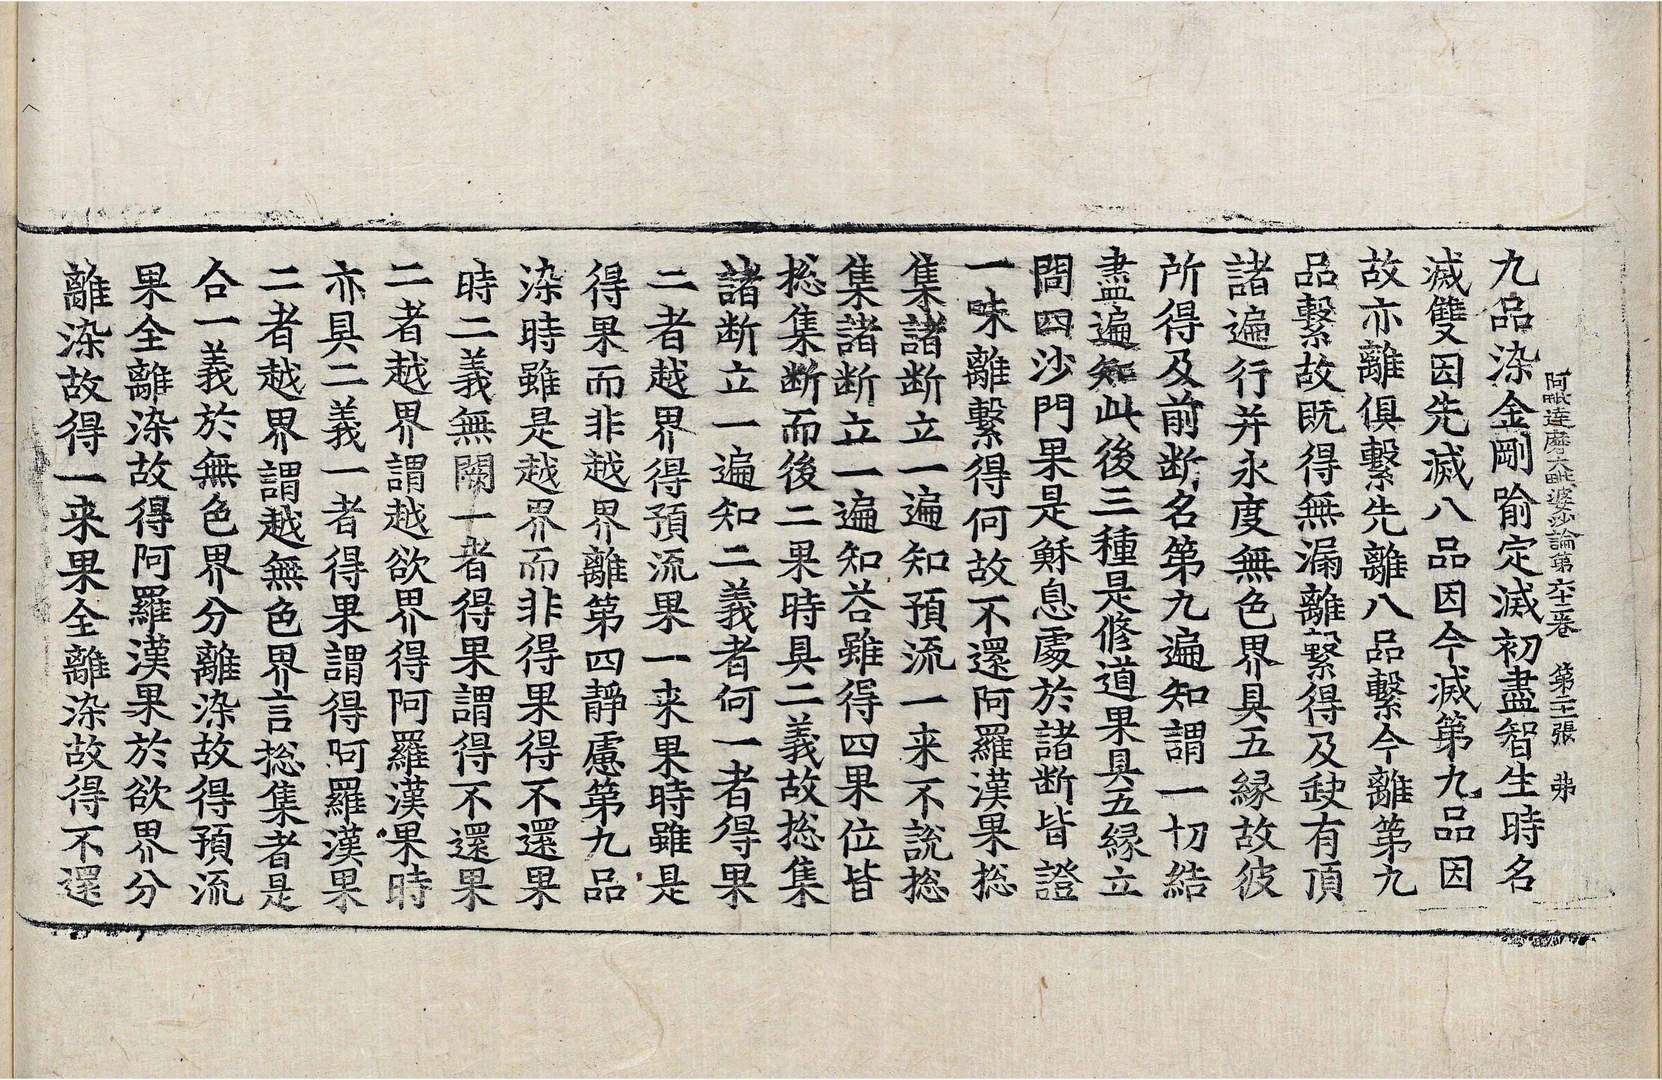 阿毗達磨大毗婆沙論第六十二卷　第二張　弗
九品染金剛喻定滅初盡智生時名
滅雙因先滅八品因今滅第九品因
故亦離俱繫先離八品繫今離第九
品繫故既得無漏離繫得及缺有頂
諸遍行并永度無色界具五縁故彼
所得及前断名第九遍知謂一切結
盡遍知此後三種是修道果具五縁立
問四沙門果是穌息處於諸断皆證
一味離繫得何故不還阿羅漢果捴
集諸断立一遍知預流一来不說捴
集諸断立一遍知荅雖得四果位皆
捴集断而後二果時具二義故捴集
諸断立一遍知二義者何一者得果
二者越界得預流果一来果時雖是
得果而非越界離第四靜慮第九品
染時雖是越界而非得果得不還果
時二義無闕一者得果謂得不還果
二者越界謂越欲界得阿羅漢果時
亦具二義一者得果謂得阿羅漢果
二者越界謂越無色界言捴集者是
合一義於無色界分離染故得預流
果全離染故得阿羅漢果於欲界分
離染故得一来果全離染故得不還